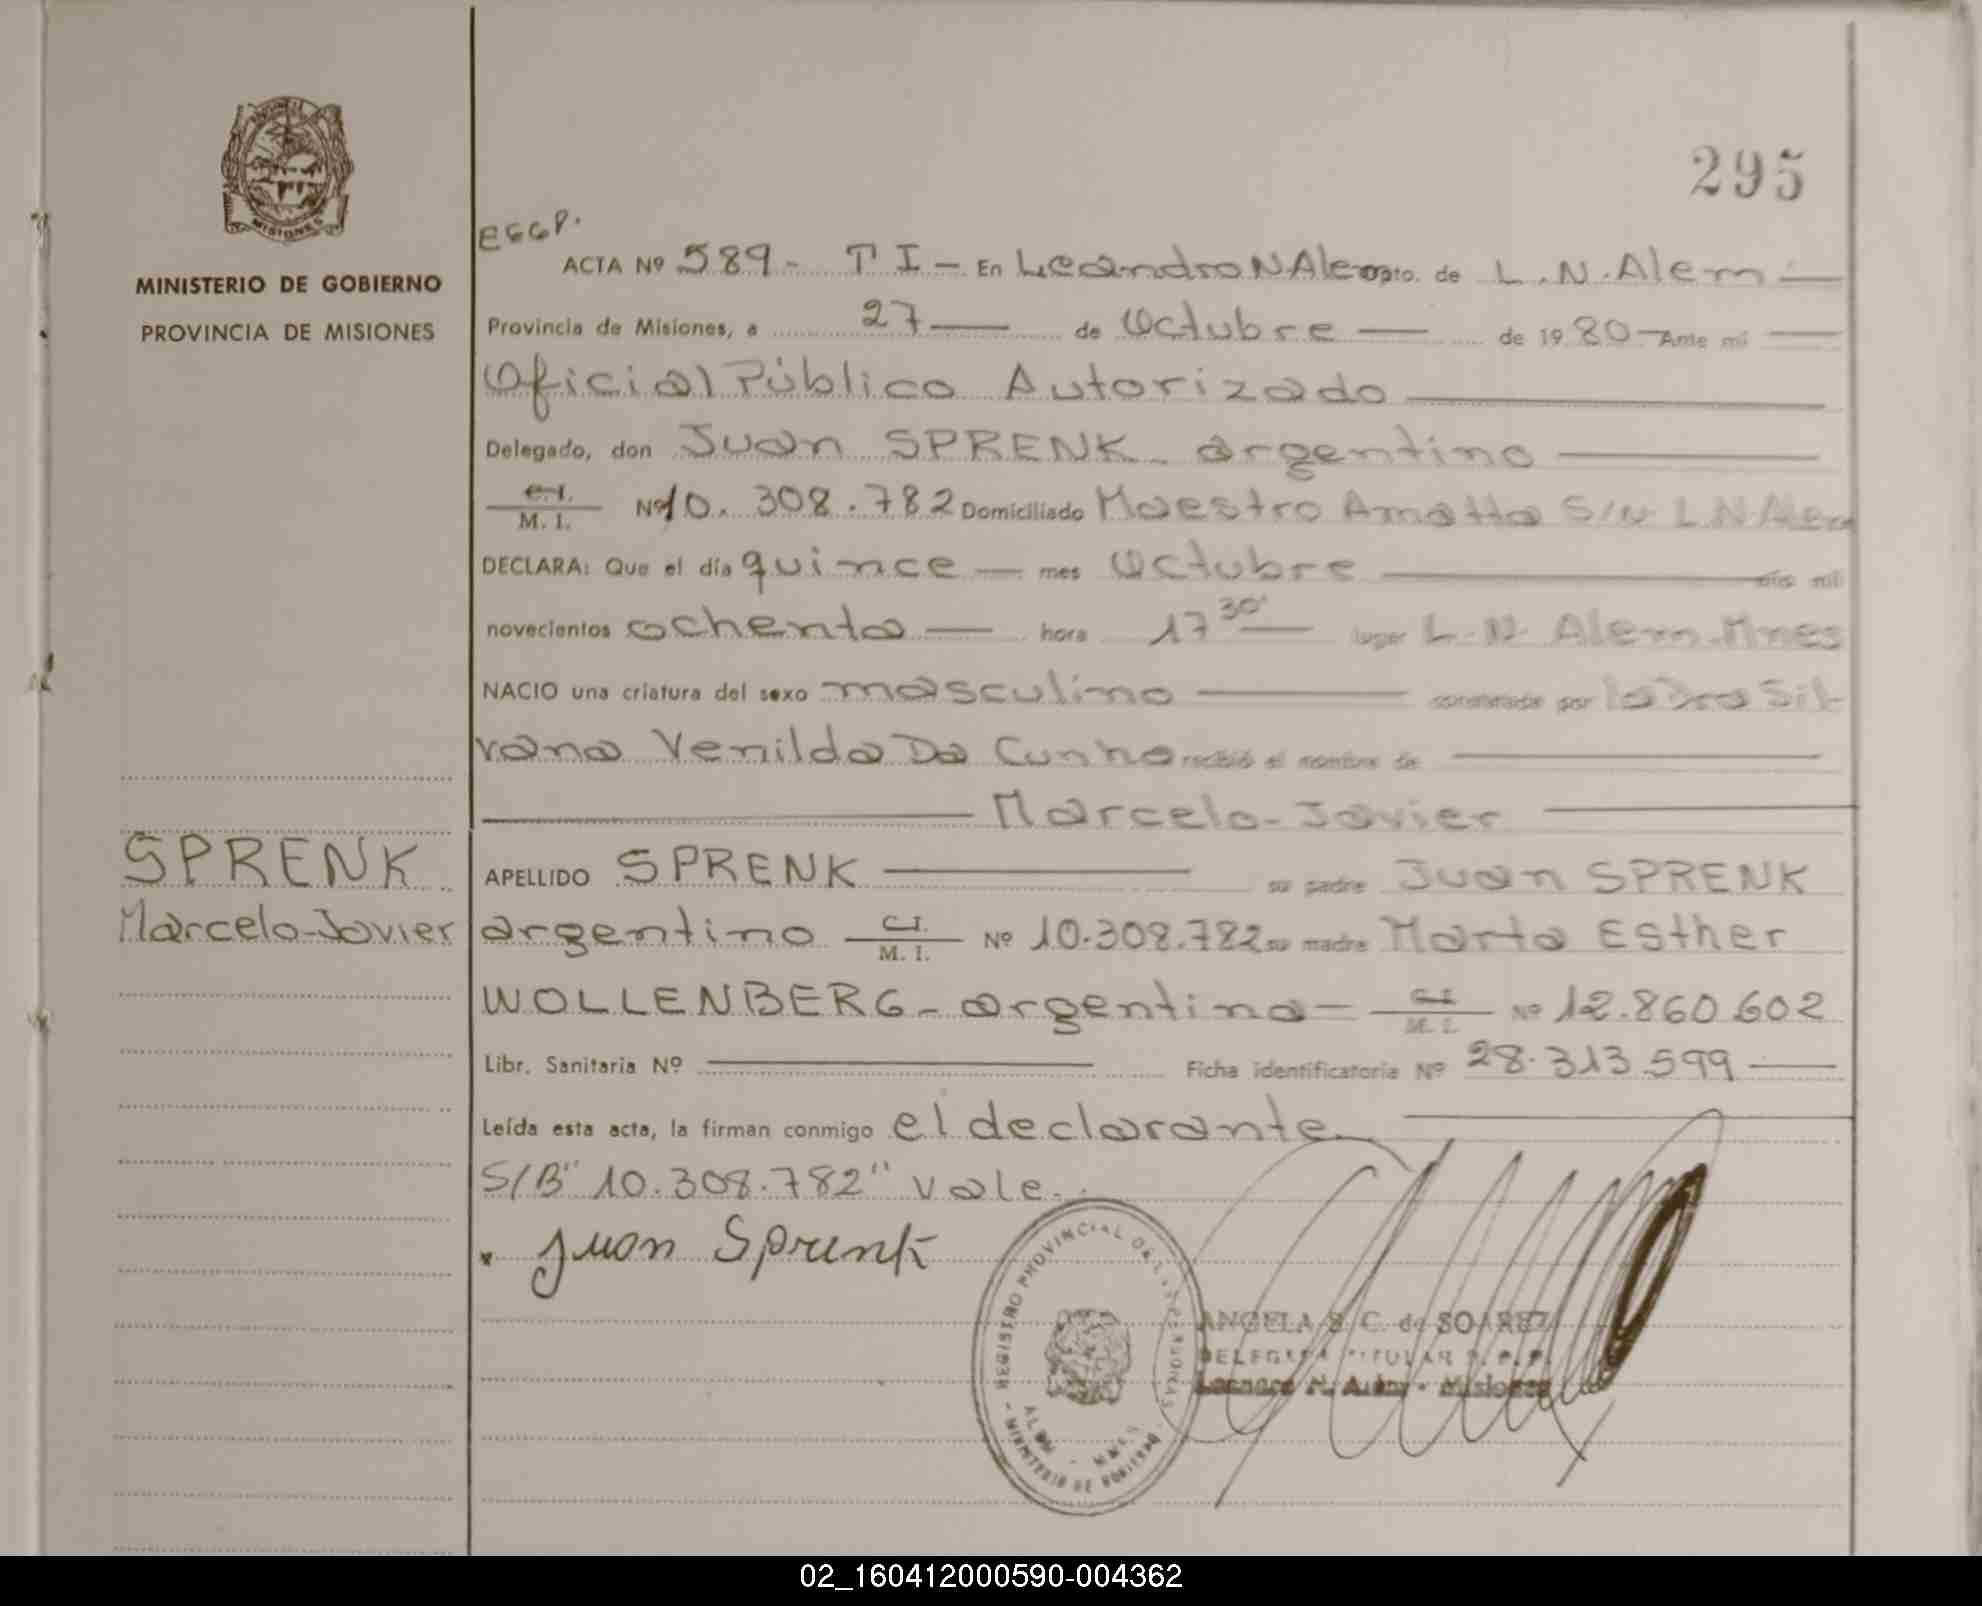 295
MISIONES
MINISTERIO DE GOBIERNO
PROVINCIA DE MISIONES
SPRENK
Marcelo-Javier
ACTA Nº 589- T I - En Leandro N Alem Dpto. de L. N. Alem
Provincia de Misiones, a 27 de Octubre de 1980 Ante mi
Oficial Público Autorizado
Delegado, don Juan SPRENK - argentino
C.I. M. I. Nº 10.308.782 Domiciliado Maestro Amatta S/N L N Alem
DECLARA: Que el día quince mes Octubre año mil
novecientos ochenta hora 17 30' lugar L. N. Alem. Mnes
NACIO una criatura del sexo masculino constatado por la Dra Sil-
vana Venilda Da Cunha recibió el nombre de
Marcelo-Javier
APELLIDO SPRENK su padre Juan SPRENK
argentino C.I. M. I. Nº 10.308.782 su madre Marta Esther
WOLLENBERG - argentina - C.I. M. I. Nº 12.860.602
Libr. Sanitaria Nº Ficha identificatoria Nº 28.313.599
Leída esta acta, la firman conmigo el declarante
S/B "10.308.782" Vale.
Juan Sprenk
REGISTRO PROVINCIAL DE LAS PERSONAS
ALEM - MNES
- MINISTERIO DE GOBIERNO
ANGELA S. C. de SOAREZ
DELEGADA TITULAR R. P. P.
Leandro N. Alem - Misiones
02_160412000590-004362